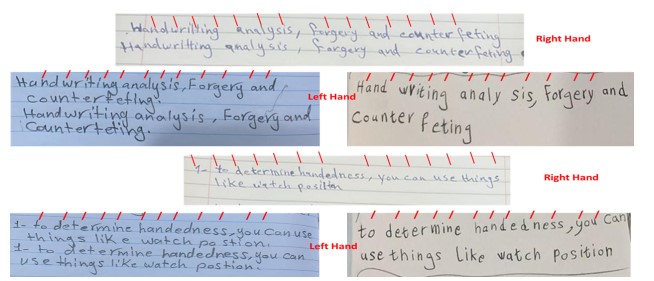 Handwriting analysis, forgery and counter feting
Handwriting analysis, forgery and counterfeting.
Right Hand
Handwriting analysis, Forgery and
counterfeting.
Handwriting analysis, Forgery and
Counterteting.
Left Hand
Hand writing analy sis, Forgery and
Counter feting
1- to determine handedness, you can use things
like watch positin
Right Hand
1- to determine handedness, you can use
things like watch po stion.
1- to determine handedness, you can
use things like watch postion.
Left Hand
to determine handed ness, you can
use things like watch position